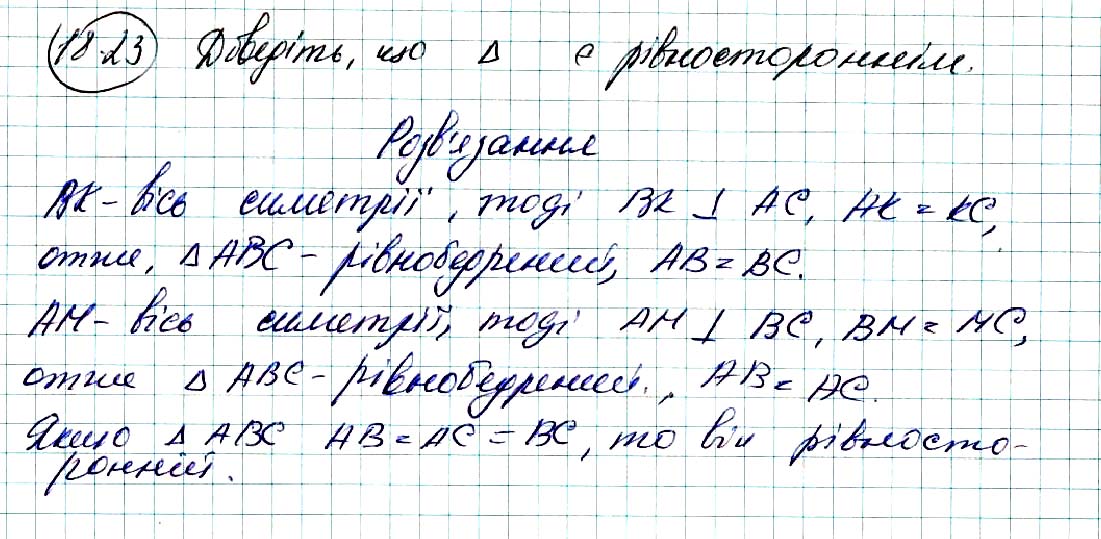 18.23 Доведіть, що Δ є рівностороннім.
Розв'язання
BK - вісь симетрії, тоді BK ⊥ AC, AK = KC,
отже, Δ ABC - рівнобедрений, AB = BC.
AM - вісь симетрії, тоді AM ⊥ BC, BM = MC,
отже Δ ABC - рівнобедрений, AB = AC.
Якщо Δ ABC AB = AC = BC, то він рівносто-
ронній.